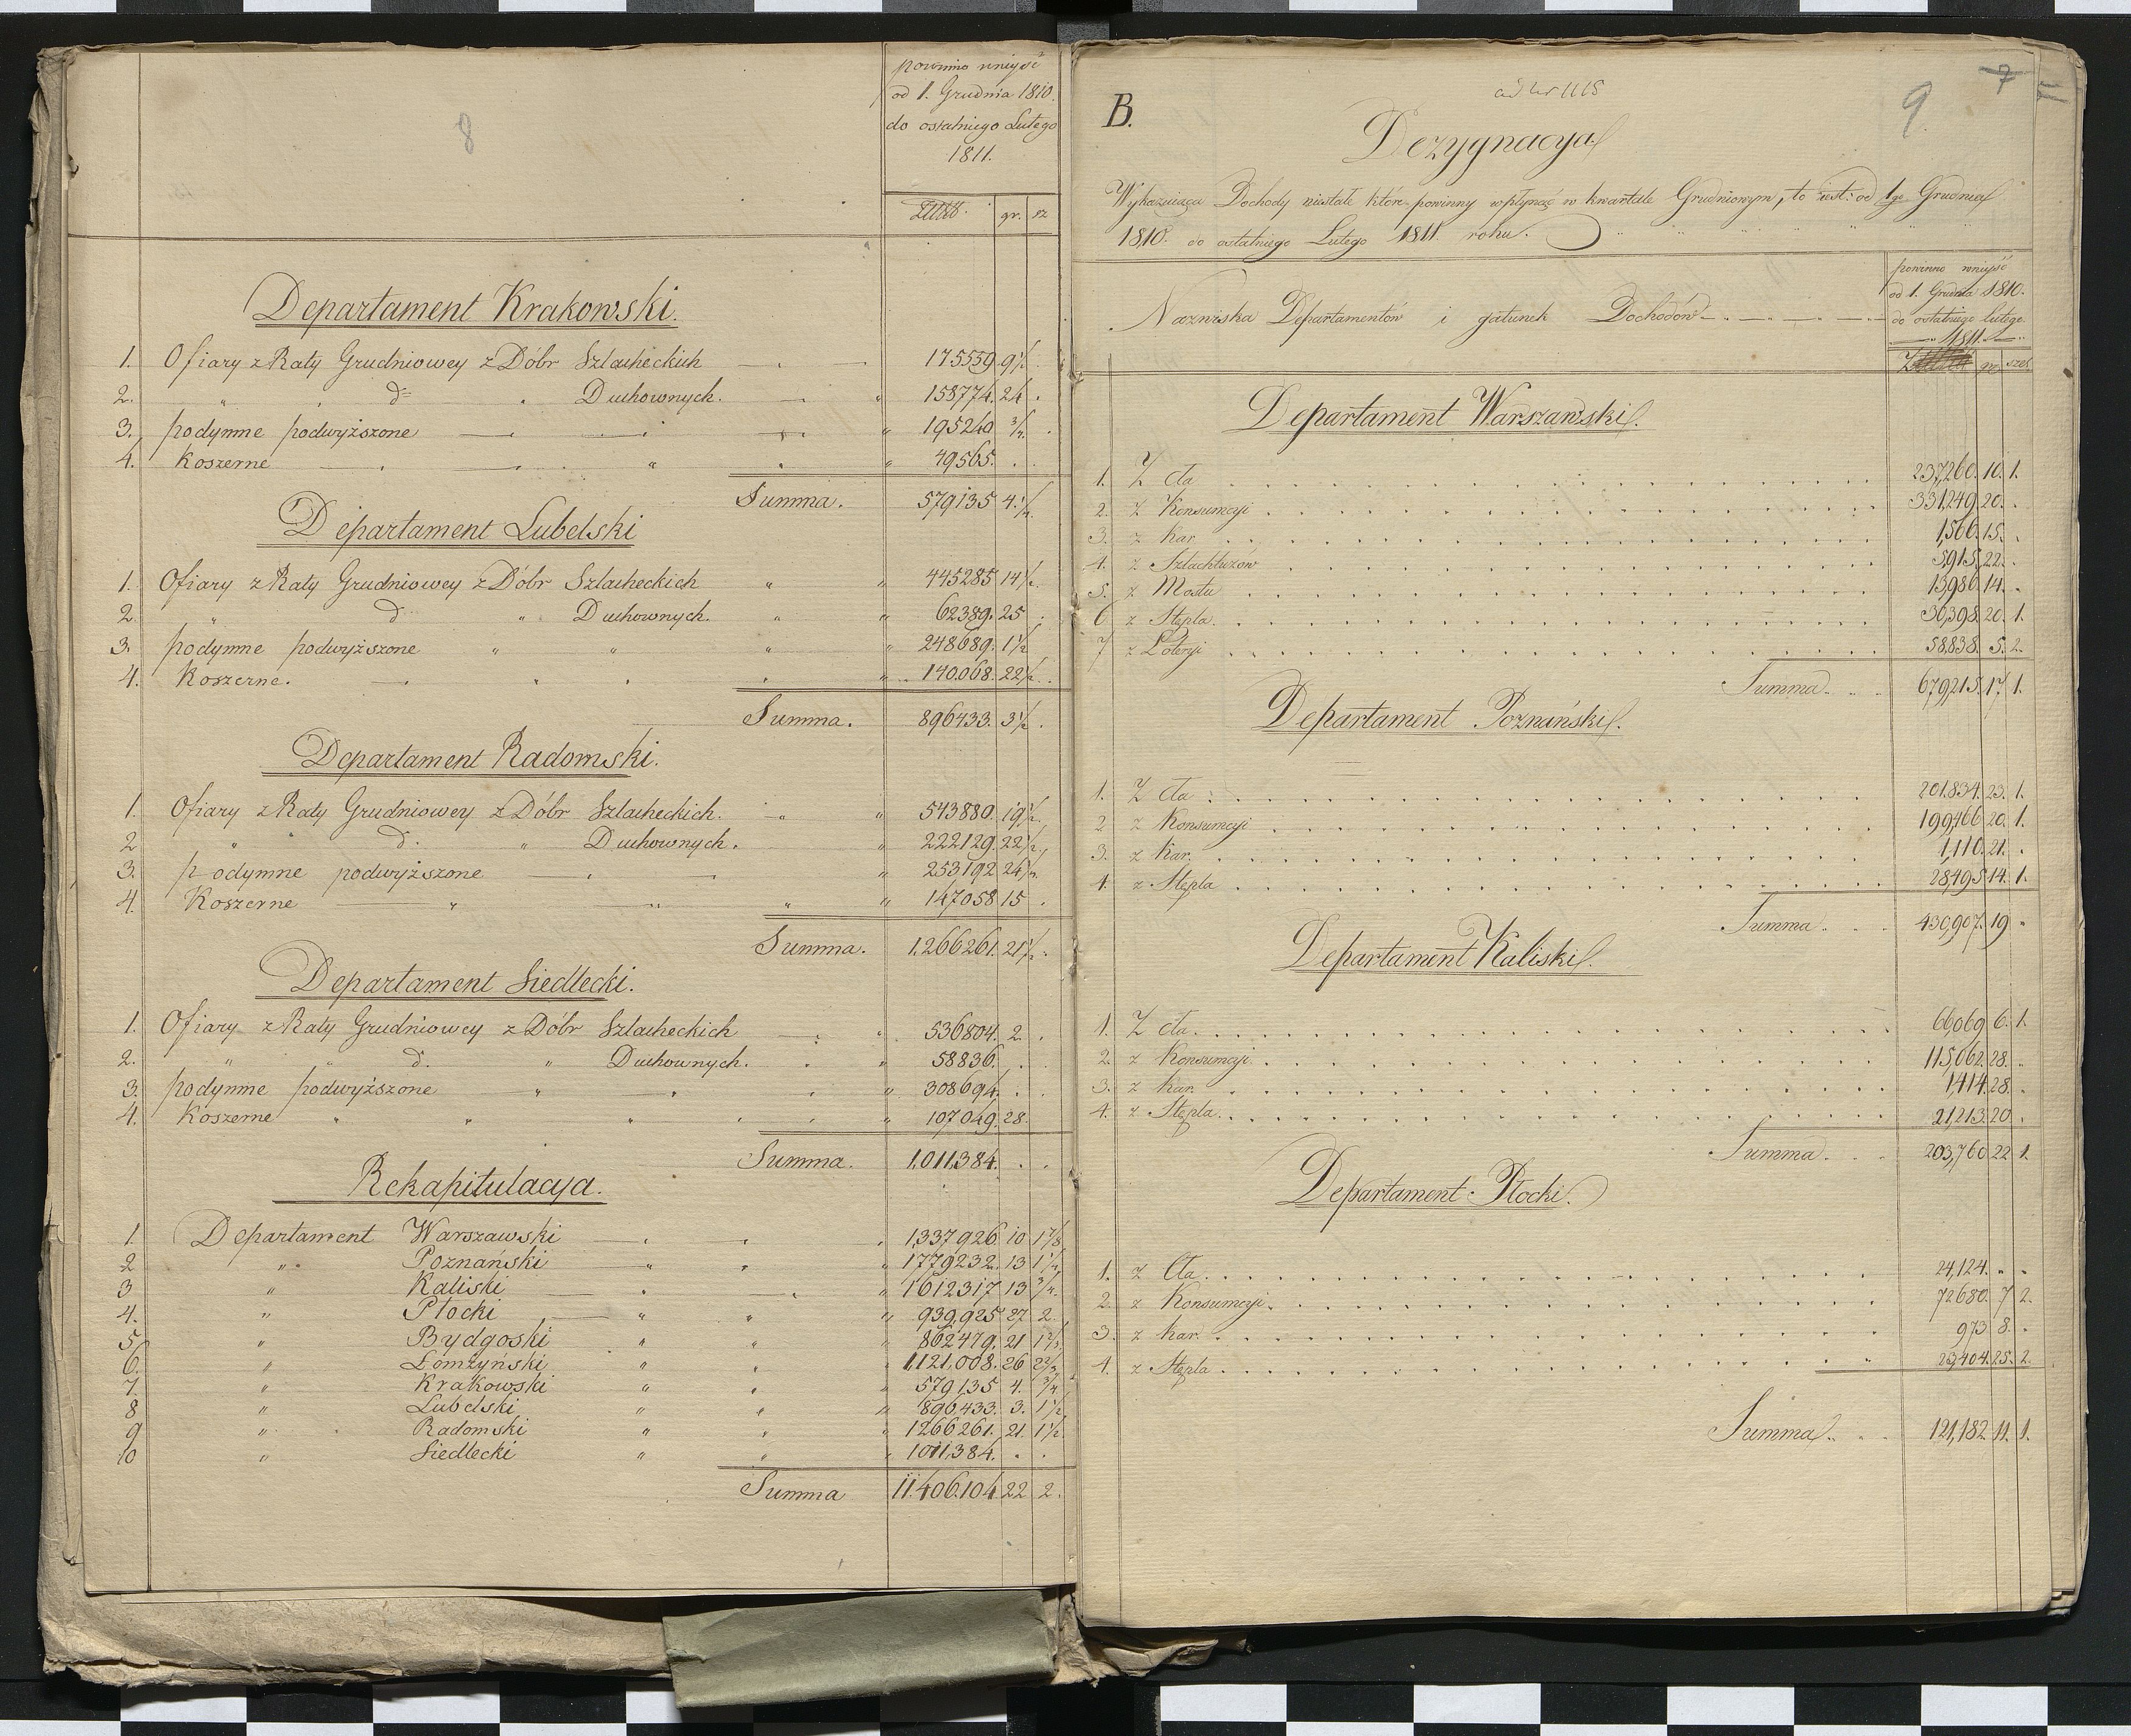 8
powinno wniyść
od 1. Grudnia 1810.
do ostatniego Lutego
1811.
gr. sz
Departament Krakowski.
1. Ofiary z Raty Grudniowey z Dóbr Szlacheckich 175559 9½
2. " d° " Duchownych. 158774. 24
3. podymne podwyższone 195240 ¾
4. Koszerne 49565.
Summa. 579135 4¼
Departament Lubelski
1. Ofiary z Raty Grudniowey z Dóbr Szlacheckich 445285 14½
2. " d° " Duchownych. 62389. 25
3. podymne podwyższone 248689. 1½
4. Koszerne. 140.068. 22½
Summa. 896433. 3½
Departament Radomski.
1. Ofiary z Raty Grudniowey z Dóbr Szlacheckich. 543880. 19½
2 " d° " Duchownych. 222129. 22½
3. podymne podwyższone 253192 24½
4. Koszerne 147058 15
Summa. 1.266261. 21½
Departament Siedlecki.
1. Ofiary z Raty Grudniowey z Dóbr Szlacheckich 536804. 2.
2. " " d° " Duchownych. 58836.
3. podymne podwyższone 308694.
4. Koszerne 107049. 28.
Summa. 1,011,384.
Rekapitulacya.
1 Departament Warszawski 1,337926. 10 1⅞
2 " Poznański 1779232. 13 1½
3 " Kaliski 1612317 13 ¾
4. " Płocki 939,925 27 2.
5 " Bydgoski 862479. 21 1⅔
6. " Łomżyński 1,121,008. 26 2⅔
7. " Krakowski 579135 4. ¾
8 " Lubelski 896,433. 3. 1½
9 " Radomski 1266261. 21. 1½
10 " Siedlecki 1011,384.
Summa 11.406.104 22 2.
B.
9
7
Dezygnacya
Wykazuiąca Dochody niestałe które powinny wpłynąć w kwartale Grudniowym, to iest: od 1go Grudnia
1810. do ostatniego Lutego 1811. roku.
Nazwiska Departamentów i gatunek Dochodów
powinno wniyść
od 1. Grudnia 1810.
do ostatniego lutego
1811.
gr. szel.
Departament Warszawski.
1. Z Cła 237,260. 10. 1.
2. z Konsumcyi 331,249 20.
3. z Kar 1,566. 15.
4. z Szlachtuzów 5,915. 22.
5. z Mostu 13,986. 14.
6 z Stępla 30,398. 20. 1.
7 z Loteryi 58,838. 5. 2.
Summa 679,215. 17. 1.
Departament Poznański.
1. Z Cła 201.834. 23. 1.
2 z Konsumcyi 199,466 20. 1.
3. z Kar. 1,110. 21.
4. z Stępla 28,495 14. 1.
Summa 430,907. 19
Departament Kaliski.
1. Z Cła. 66069 6. 1.
2. z Konsumcyi 115,062. 28.
3. z Kar. 1414. 28.
4. z Stępla. 21,213. 20.
Summa. 203,760 22 1.
Departament Płocki.
1. z Cła. 24,124.
2. z Konsumcyi. 72680. 7 2.
3. z Kar. 973 8.
4. z Stępla 23,404. 25. 2.
Summa 121,182. 11. 1.